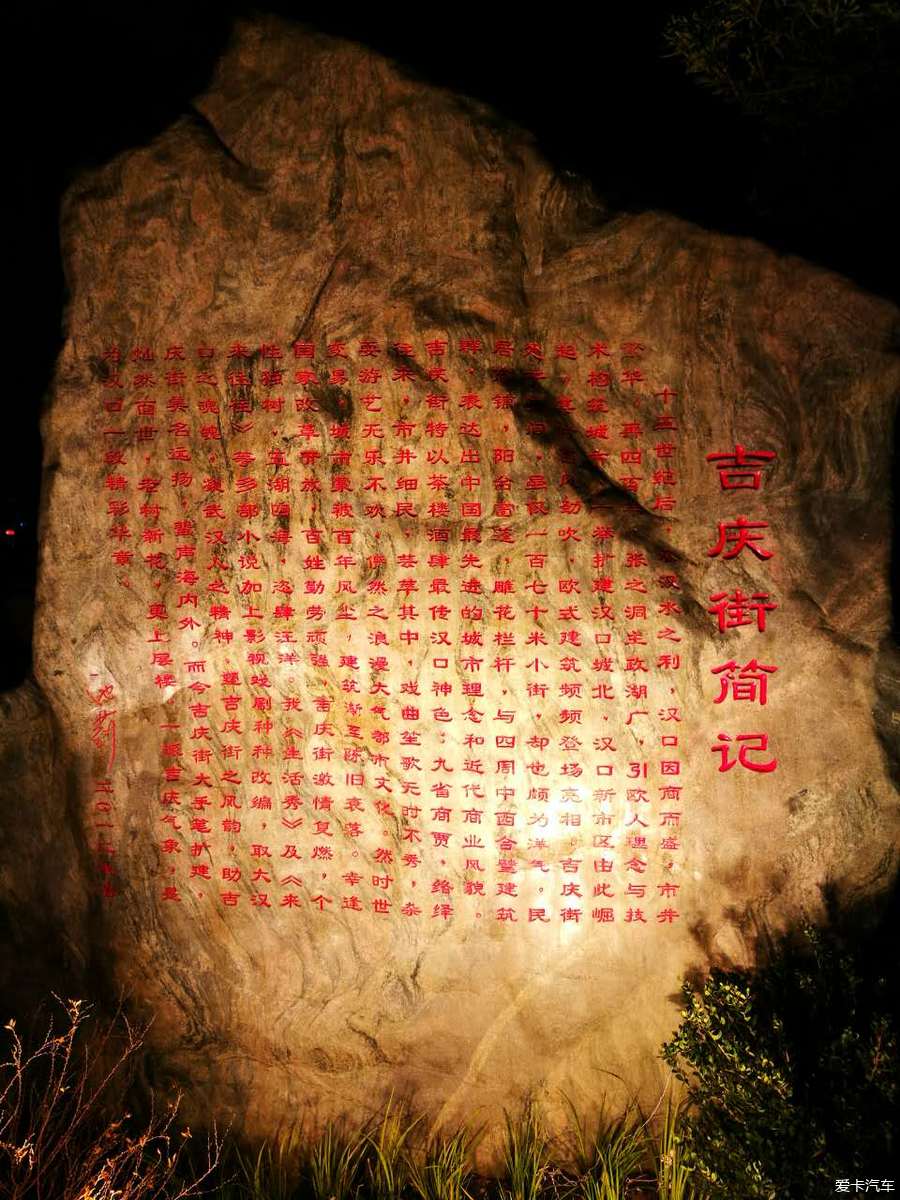 吉庆街简记
十五世纪后,汉水之利,汉口因商而盛,市井
繁华,再四百年,张之洞主政湖广,引欧人理念与技
术构筑城市,一举扩建汉口城北,汉口新市区由此崛
起,劲吹,欧式建筑频频登场亮相。吉庆街
虽仅一百七十米小街,却也颇为洋气。民
居商铺,阳台高逸,雕花栏杆,与四周中西合璧建筑
群,表达出中国最先进的城市理念和近代商业风貌。
吉庆街特以茶楼酒肆最传汉口神色;九省商贾,络绎
往来,市井细民,荟萃其中,戏曲笙歌无时不秀,杂
耍游艺无乐不欢,俨然之浪漫大气都市文化。然时世
变易,城市蒙被百年风尘,建筑渐至陈旧衰落。幸逢
国家改革开放,百姓勤劳顽强,吉庆街激情复燃,个
性独树,五湖四海,恣肆汪洋,我《生活秀》及《来
来往往》等多部小说加上影视戏剧种种改编,取大汉
口之魂魄,凝武汉人之精神,耀吉庆街之风韵,助吉
庆街美名远扬,蜚声海内外。而今吉庆街大手笔扩建,
灿然面世,老树新花,更上层楼,一派吉庆气象,是
为汉口一段精彩华章。
池莉
爱卡汽车